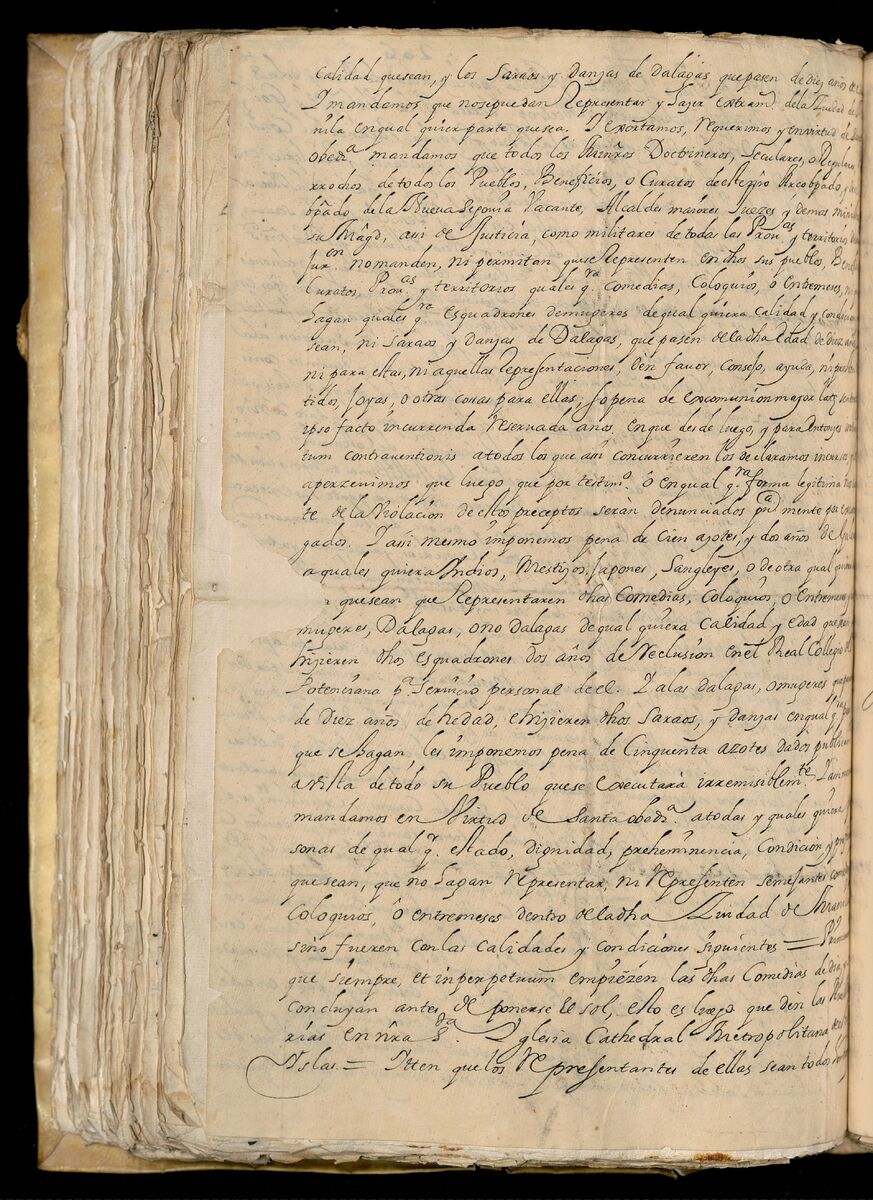 Calidad quesean, y los Saraos y Danzas de Dalagas quepasen de diez años de
Y mandamos que nosepuedan Representar y hazer extram. dela Ziudad de
nila enqual quier parte quesea. Y exortamos, requerimos y envirtud de
obed.ª mandamos que todos los Minros Doctrineros, Seculares, o Regulares
rrochos detodos los Pueblos, Beneficios, o Curatos deestenro Arcobpado, y
bpado dela Nueua Segouia Vacante, Alcaldes maiores Juezes y demas
su Magd, asi de Justicia, como militares de todas las Prou.as y territorios
Jur.on nomanden, ni permitan quese Representen en dhos sus pueblos,
Curatos, Prou.as y territorios quales q.ra Comedias, Coloquios, o entremeses, ni
hagan quales q.ra esquadrones demugeres dequal quiera Calidad y
sean, ni Saraos y danzas de Dalagas, que pasen deladha Edad de diez
ni para estas, ni aquellas representaciones, den fauor, Consejo, ayuda, ni
tidos, Joyas, o otras cosas para ellas, sopena de excomunion major latę
ipso facto incurrenda reservada anos, enque desde luego, y para entonzes
tum contrauentionis atodos los que asi concurrieren los declaramos incursos,
aperzeuimos que luego que por testim.o o enqual q.ra forma legitima
te de la Violacion de estos preceptos seran denunciados pu.ca mente por
gados. Y assi mesmo imponemos pena de Cien azotes, y dos años de
aquales quiera Indios, Mestizos, Japones, Sangleyes, o de otra qual
quesean que Representaren dhas Comedias, Coloquios, o entremeses
mugeres, Dalagas, o no Dalagas de qual quiera Calidad y edad que
hizieren dhos esquadrones dos años de Reclusion en el Real Collegio
Potenciana p.ª Seruicio personal de el. Y alas dalagas, o mugeres que
de Diez años de hedad, e hizieren dhos Saraos, y danzas enqual q.
que se hagan, les imponemos pena de Cinquenta azotes dados
avista detodo su Pueblo quese executara irremisiblem.te
mandamos en Virtud de Santa obed.ª atodas y quales quiera
sonas de qual q. estado, dignidad, preheminencia, Condicion y
quesean, que no hagan representar, ni representen semejantes
Coloquios, o entremeses dentro deladha Ziudad de
sino fueren con las Calidades y condiciones siguientes =
que siempre, et inperpetuum empiezen las dhas Comedias de dia, y
concluyan antes de ponerse el sol, esto es luego que den las
rias ennra S.ta Yglesia Cathedral Metropolitana
Yslas. = Itten que los representantes de ellas sean todos